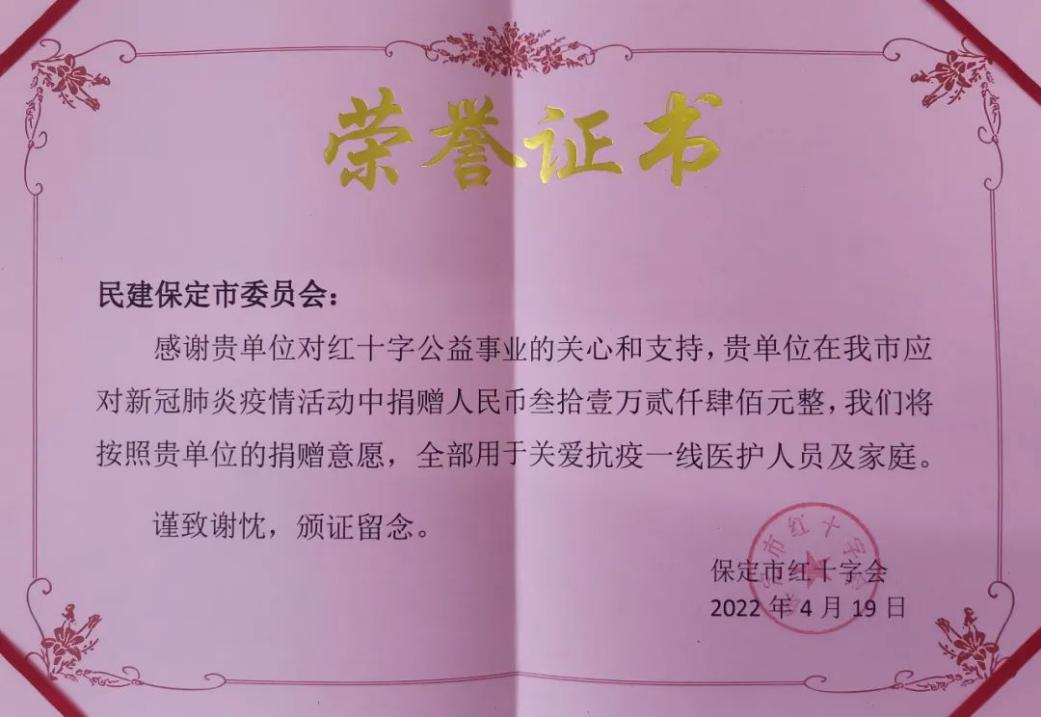 荣誉证书
民建保定市委员会：
感谢贵单位对红十字公益事业的关心和支持，贵单位在我市应
对新冠肺炎疫情活动中捐赠人民币叁拾壹万贰仟肆佰元整，我们将
按照贵单位的捐赠意愿，全部用于关爱抗疫一线医护人员及家庭。
谨致谢忱，颁证留念。
市红十字会
保定市红十字会
2022 年 4 月 19 日